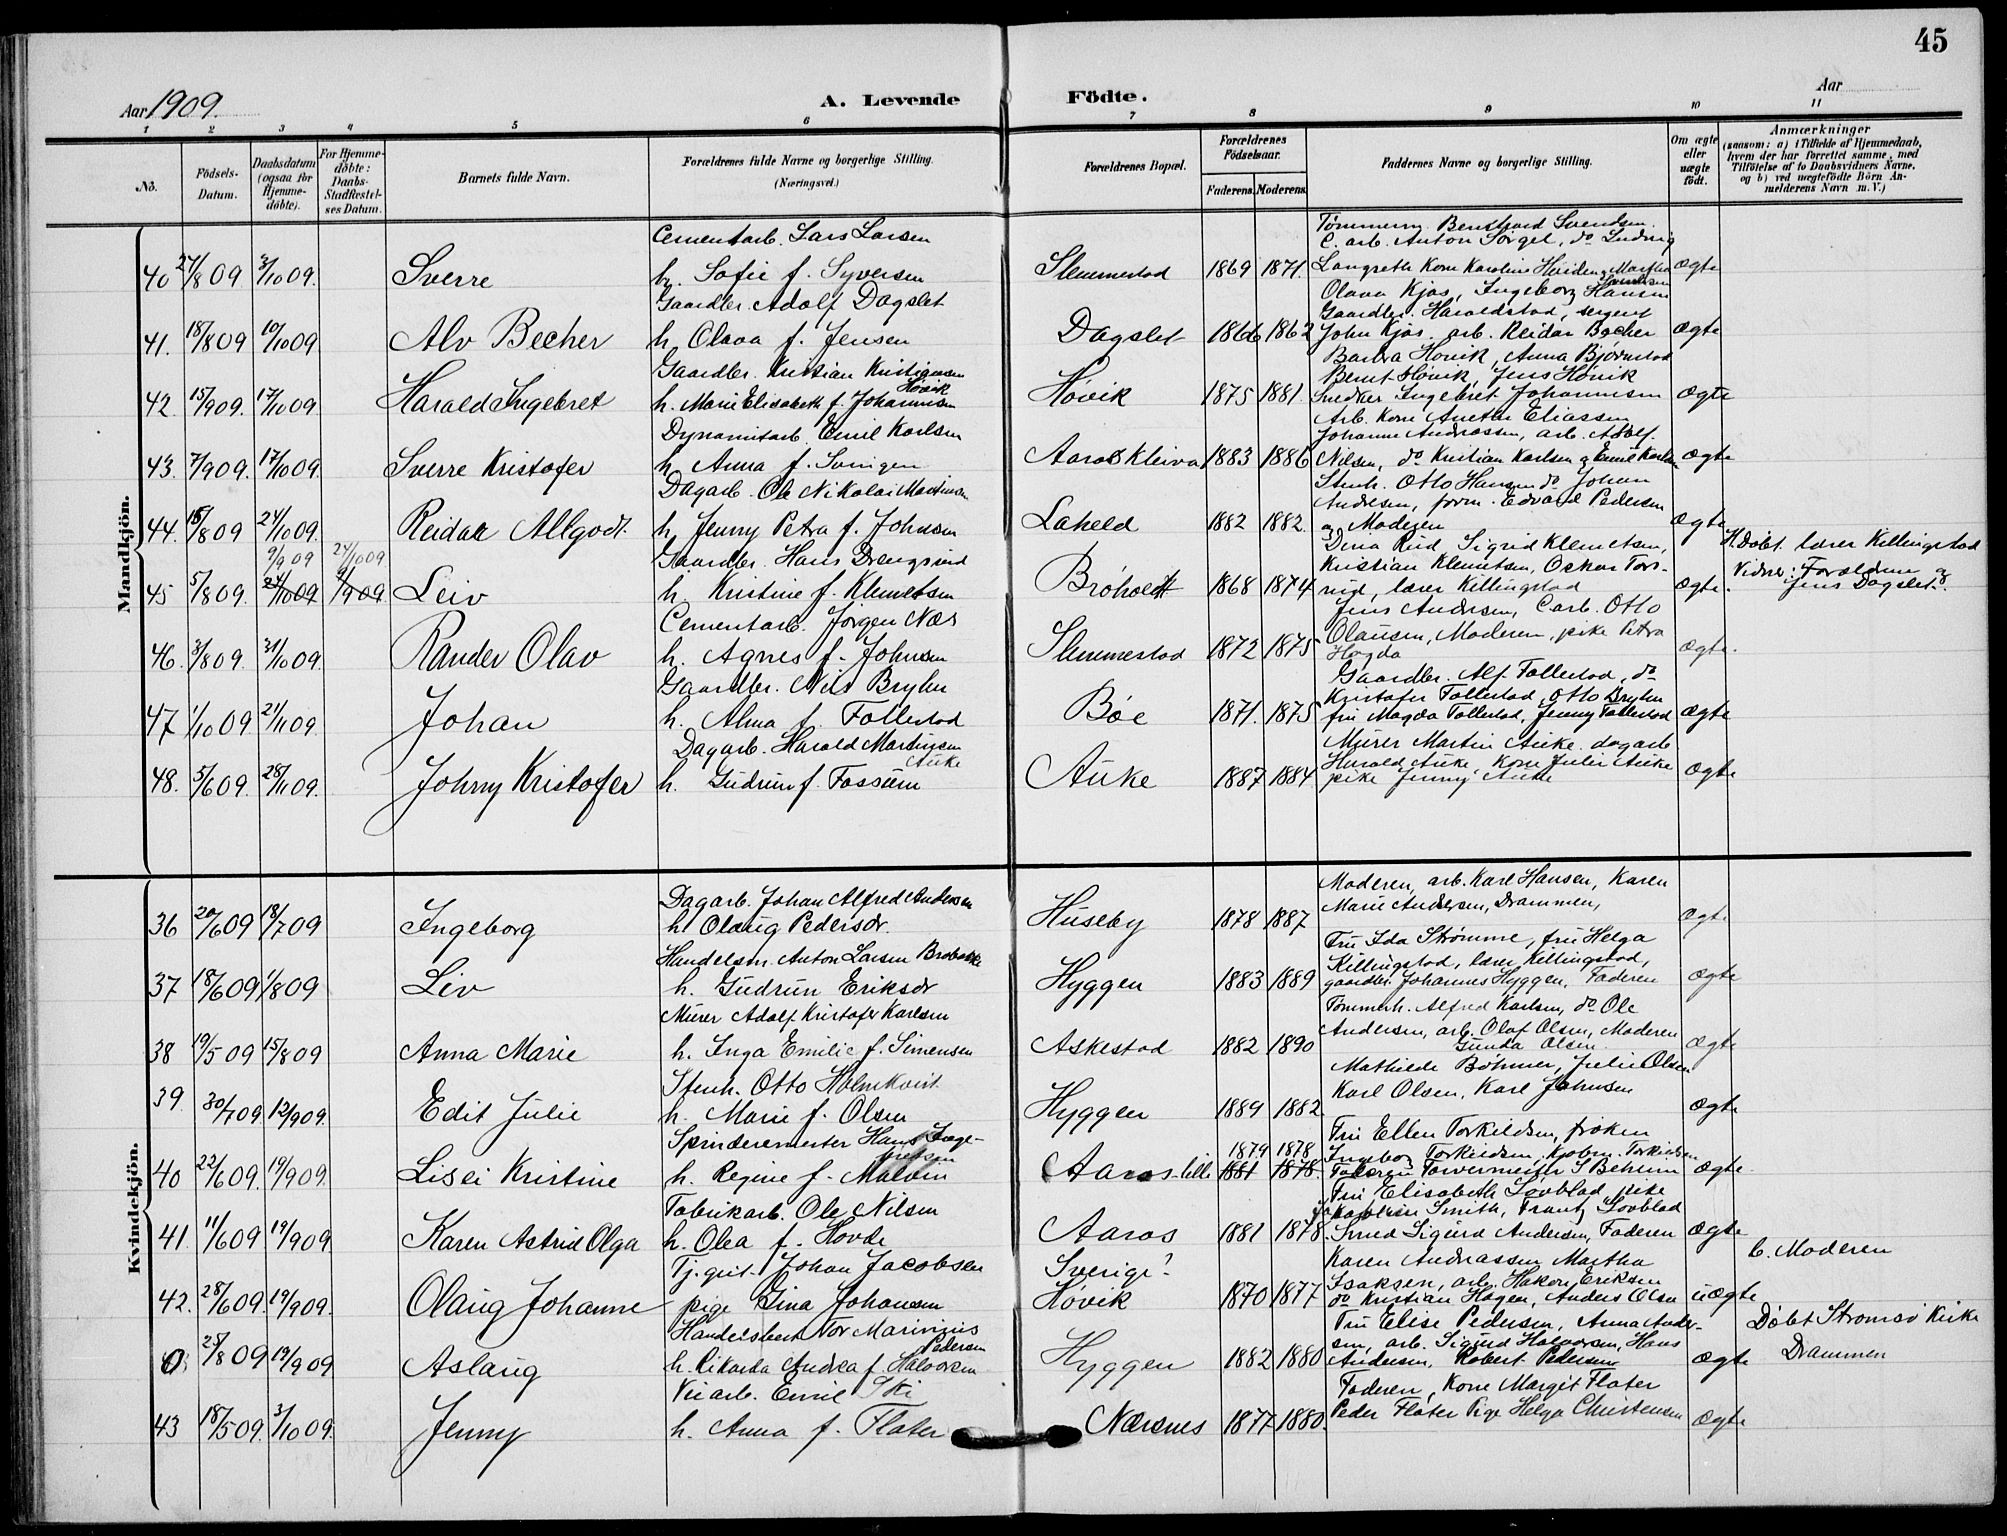 45
Aar 1909.
A. Levende Födte.
Aar
1 2 3 4 5 6 7 8 9 10 11
No.
Födsels-Datum.
Daabsdatum (ogsaa for Hjemme-döbte).
For Hjemme-döbte: Daabs-Stadfæstel-ses Datum.
Barnets fulde Navn.
Forældrenes fulde Navne og borgerlige Stilling. (Næringsvei.)
Forældrenes Bopæl.
Forældrenes Födselsaar.
Faderens. Moderens.
Faddernes Navne og borgerlige Stilling.
Om ægte eller uægte født.
Anmærkninger
(saasom: a) i Tilfælde af Hjemmedaab, hvem der har forrettet samme, med Tilföielse af to Daabsvidners Navne, og b) ved uægtefödte Börn An-melderens Navn m. V.)
Mandkjön.
Cementarb. Lars Larsen
Tømmerm. Bernthard Svendsen
C. arb. Anton Sørgel, do Ludvig
40 27/8 09 3/10 09. Sverre h. Sofie f. Syversen Slemmestad 1869 1871. Langreth Kone Karoline Heiden, Martha Svendsen ægte
Gaardbr. Adolf Dagslet
Olava Kjos, Ingeborg Hansen
Gaardbr. Haroldstad, sergent
41. 18/8 09 10/10 09 Alv Becher h. Olava f. Jensen Dagslet 1866 1862 John Kjos. arb. Reidar Becher ægte
Gaardbr. Kristian Kristiansen Høvik
Barbra Høvik, Anna Bjørnstad
Bernt Høvik, Jens Høvik
42. 15/9 09. 17/10 09 Harald Ingebret h. Marie Elisabeth f. Johannesen Høvik 1875 1881. Snedker Ingebret Johannesen ægte
Dynamitarb. Emil Karlsen
Arb. Kone Anethe Eliassen
Johanne Andreassen, arb. Adolf
43. 7/9 09. 17/10 09. Sverre Kristofer h. Anna f. Svingen Aaros Kleiva 1883 1886 Nilsen, do Kristian Karlsen & Emil Karlsen ægte
Dagarb. Ole Nikolai Martinsen
Stenh. Otto Hansen do Johan
Andresen, form. Edvard Pedersen
44. 15/8 09 24/10 09. Reidar Allgodt. h. Jenny Petra f. Johnsen Laheld 1882 1882. og Moderen ægte
9/9 09 24/10 09
Gaardbr. Hans Drengsrud
Dina Rud, Sigrid Klemetsen,
Kristian Klemetsen, Oskar Tors-
H. Døbt. lærer Killingstad
Vidner: Forældrene og
45 5/8 09. 24/10 09 9/9 09 Leiv h. Kristine f. Klemetsen Brøholt 1868 1874 rud, lærer Killingstad ægte. Jens Dagslet.
Cementarb. Jørgen Næs
Jens Andersen, C arb. Otto
Olausen, Moderen, pike Petra
46. 3/8 09. 31/10 09. Rander Olav h. Agnes f. Johnsen Slemmestad 1872 1875 Høgda ægte.
Gaardbr. Nils Bryhn
Gaardbr. Alf Follestad, do
Kristofer Follestad, Otto Bryhn
47 1/10 09 21/11 09 Johan h. Alma f. Follestad Bøe 1871. 1875 fru Magda Follestad, Jenny Follestad ægte
Dagarb. Harald Martinsen Auke
Murer Martin Auke. dagarb
Harald Auke, Kone Julie Auke
48. 5/6 09. 28/11 09. Johny Kristofer h. Gudrun f. Fossum Auke 1887 1884 pike Jenny Auke ægte
Kvindekjön.
Dagarb. Johan Alfred Andersen
Moderen, arb. Karl Hansen, Karen
Marie Andersen, Drammen,
36 20/6 09 18/7 09 Ingeborg h. Olaug Pedersdr. Huseby 1878 1887 ægte
Handelsm. Anton Larsen
Fru Ida Strømme, fru Helga
Killingstad, lærer Killingstad,
37 18/6 09 1/8 09 Liv h. Gudrun Eriksdr Hyggen 1883 1889 gaardbr. Johannes Hyggen, Faderen ægte
Murer Adolf Kristofer Karlsen
Tømmerh. Alfred Karlsen, do Ole
Andersen, arb. Olaf Olsen, Moderen
38 19/5 09 15/8 09 Anna Marie h. Inga Emilie f. Simensen Askestad 1882 1890 Gunda Olsen ægte
Stenh. Otto Holmkvist
Mathilde Bøhmer, Julie Olsen
Karl Olsen, Karl Johnsen
39 30/7 09 12/9 09. Edit Julie h. Marie f. Olsen Hyggen 1889 1882 ægte
Spinderemester Hans Inge-
bretsen
Fru Ellen Torkildsen, frøken
1879 1878 Ingebor Torkildsen, Kjøbm. Torkildsen
40 22/6 09. 19/9 09. Lisei Kristine h. Regine f. Malvin Aaros lille 1881 1878. Faderen Farvermester S Behrum ægte
Fabrikarb. Ole Nilsen
Fru Elisabeth Løvblad, pike
Jakobine Smith, Frantz Løvblad
41. 11/6 09 19/9 09 Karen Astrid Olga h. Olea f. Hovde Aaros 1881 1878. Smed Sigurd Andersen, Faderen ægte
Tj. gut. Johan Jacobsen Sverige?
Karen Andreassen Martha
Isaksen, arb. Hakon Eriksen
b. Moderen
42. 28/6 09. 19/9 09. Olaug Johanne pige Gina Johansen Høvik 1870 1877 do Kristian Hagen, Anders Olsen uægte
Handelsbest. Tor Marinius Pedersen
Fru Elise Pedersen, Anna Ander-
sen, arb. Sigurd Halvorsen, Hans
Døbt Strømsø Kirke
Drammen
0. 25/8 09 19/9 09 Aslaug h. Rikarda Andrea f. Halvorsen Hyggen 1882 1880 Andersen, Robert Pedersen ægte
Veiarb. Emil Ski
Faderen, Kone Margit Flater
43 18/5 09. 3/10 09. Jenny h. Anna f. Flater Nærsnes 1877 1880. Peder Flater Pige Helga Christensen ægte